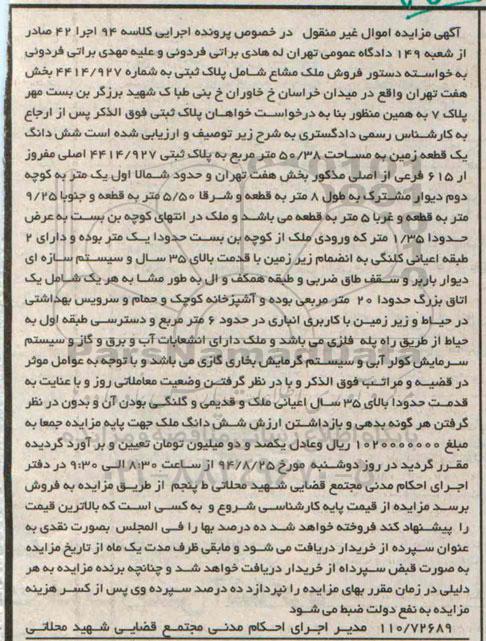 آگهی مزایده اموال غیر منقول  در خصوص پرونده اجرایی کلاسه ۹۴ اجرا ۴۲ صادر
از شعبه ۱۴۹ دادگاه عمومی تهران له هادی براتی فردوئی و علیه مهدی براتی فردوئی
به خواسته دستور فروش ملک مشاع شامل پلاک ثبتی به شماره ۴۴۱۴/۹۲۷ بخش
هفت تهران واقع در میدان خراسان خ خاوران خ بنی طبا ک شهید برزگر بن بست مهر
پلاک ۷ به همین منظور بنا به درخواست خواهان پلاک ثبتی فوق الذکر پس از ارجاع
به کارشناس رسمی دادگستری به شرح زیر توصیف و ارزیابی شده است شش دانگ
یک قطعه زمین به مساحت ۵۰/۳۸ متر مربع به پلاک ثبتی ۴۴۱۴/۹۲۷ اصلی مفروز
از ۶۱۵ فرعی از اصلی مذکور بخش هفت تهران و حدود شمالا اول یک متر به کوچه
دوم دیوار مشترک به طول ۸ متر به قطعه و شرقا ۵/۵۰ متر به قطعه و جنوبا ۹/۲۵
متر به قطعه و غربا ۵ متر به قطعه می باشد و ملک در انتهای کوچه بن بست به عرض
حدودا ۱/۳۵ متر که ورودی ملک از کوچه بن بست حدودا یک متر بوده و دارای ۲
طبقه اعیانی کلنگی به انضمام زیر زمین با قدمت بالای ۳۵ سال و سیستم سازه ای
دیوار باربر و سقف طاق ضربی و طبقه همکف و ال به طور مشا به هر یک شامل یک
اتاق بزرگ حدودا ۲۰ متر مربعی بوده و آشپزخانه کوچک و حمام و سرویس بهداشتی
در حیاط و زیر زمین با کاربری انباری در حدود ۶ متر مربع و دسترسی طبقه اول به
حیاط از طریق راه پله فلزی می باشد و ملک دارای انشعابات آب و برق و گاز و سیستم
سرمایش کولر آبی و سیستم گرمایش بخاری گازی می باشد و با توجه به عوامل موثر
در قضیه و مراتب فوق الذکر و با در نظر گرفتن وضعیت معاملاتی روز و با عنایت به
قدمت حدودا بالای ۳۵ سال اعیانی ملک و قدیمی و کلنگی بودن آن و بدون در نظر
گرفتن هر گونه بدهی و بازداشتن ارزش شش دانگ ملک جهت پایه مزایده جمعا به
مبلغ ۱۰۲۰۰۰۰۰۰۰ ریال وعادل یکصد و دو میلیون تومان تعیین و بر آورد گردیده
مقرر گردید در روز دوشنبه مورخ ۹۴/۸/۲۵ از ساعت ۸:۳۰ الی ۹:۳۰ در دفتر
اجرای احکام مدنی مجتمع قضایی شهید محلاتی ط پنجم از طریق مزایده به فروش
برسد مزایده از قیمت پایه کارشناسی شروع و به کسی است که بالاترین قیمت
را پیشنهاد کند فروخته خواهد شد ده درصد بها را فی المجلس بصورت نقدی به
عنوان سپرده از خریدار دریافت می شود و مابقی ظرف مدت یک ماه از تاریخ مزایده
به صورت قبض سپرداه از خریدار دریافت خواهد شد و چنانچه برنده مزایده به هر
دلیلی در زمان مقرر بهای مزایده را نپردازد ده درصد سپرده وی پس از کسر هزینه
مزایده به نفع دولت ضبط می شود
۱۱۰/۷۲۶۸۹  مدیر اجرای احکام مدنی مجتمع قضایی شهید محلاتی